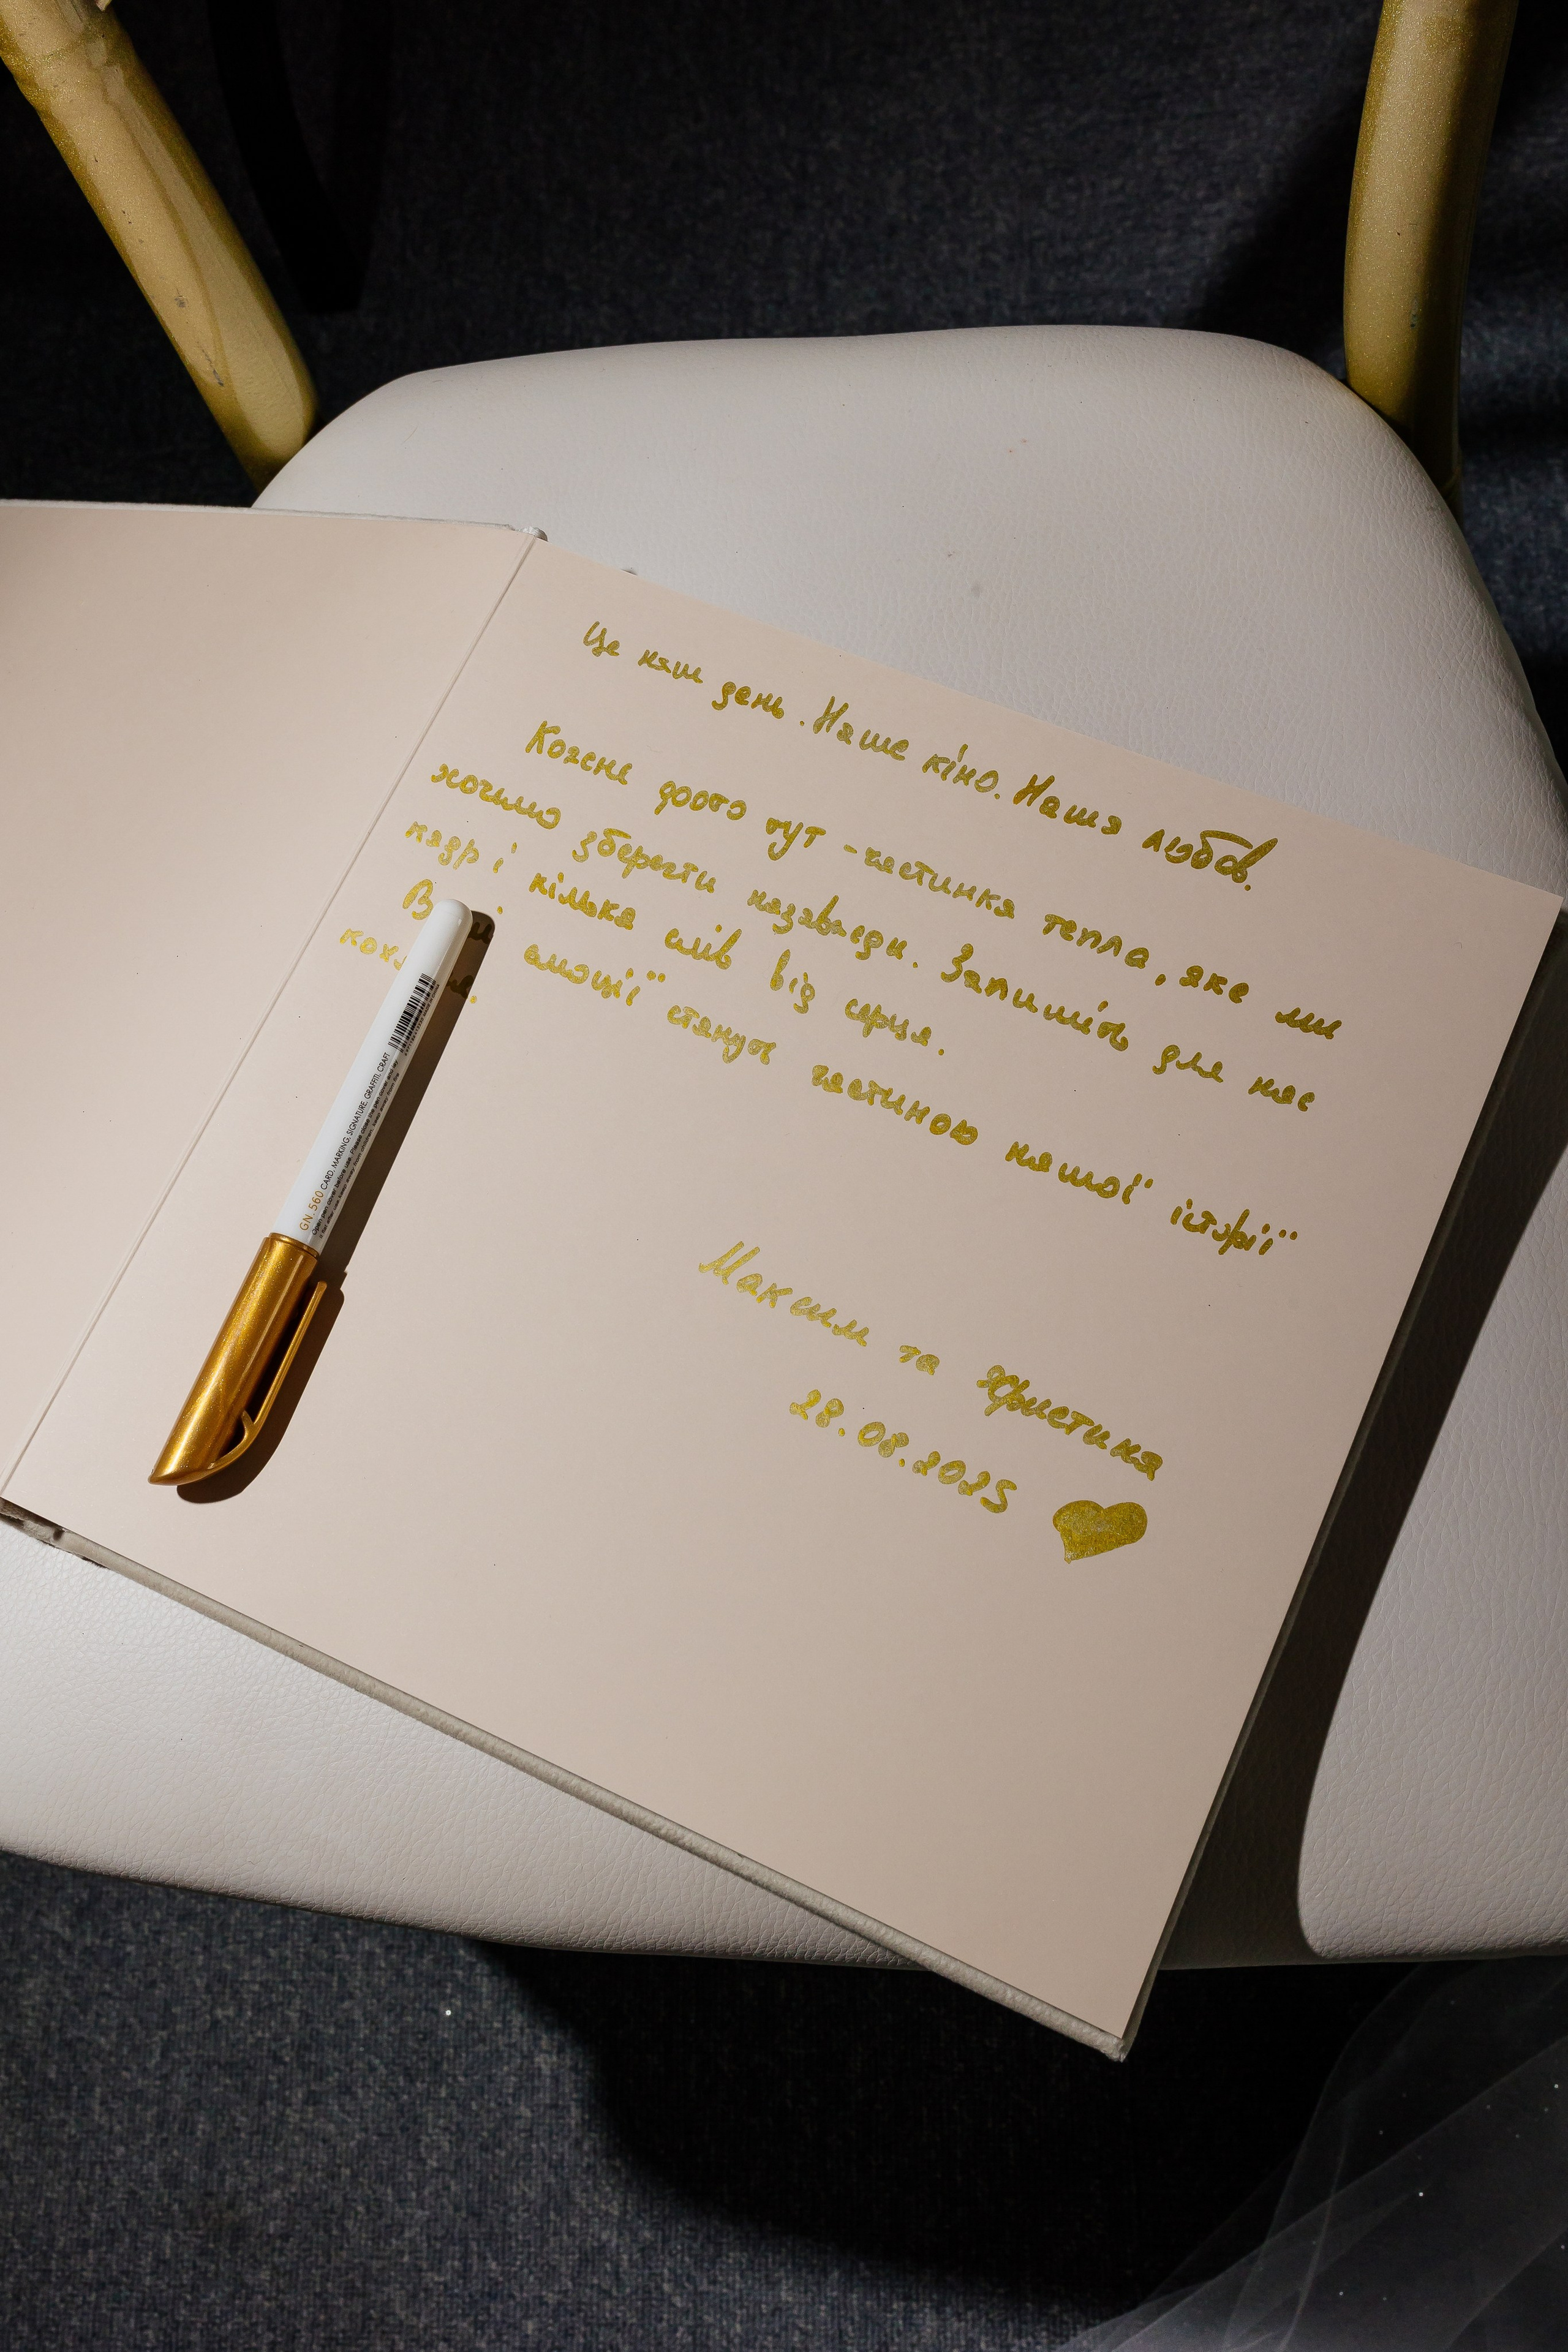 Це наш день. Наше кіно. Наша любов.
Кожне фото тут - частинка тепла, яке ми
хочемо зберегти назавжди. Запишіть для нас
кадр і кілька слів від серця.
емоції стануть частиною нашої історії
Максим та Христина
28.08.2025
GN. 560 CARD, MARKING, SIGNATURE, GRAFFITI, CRAFT